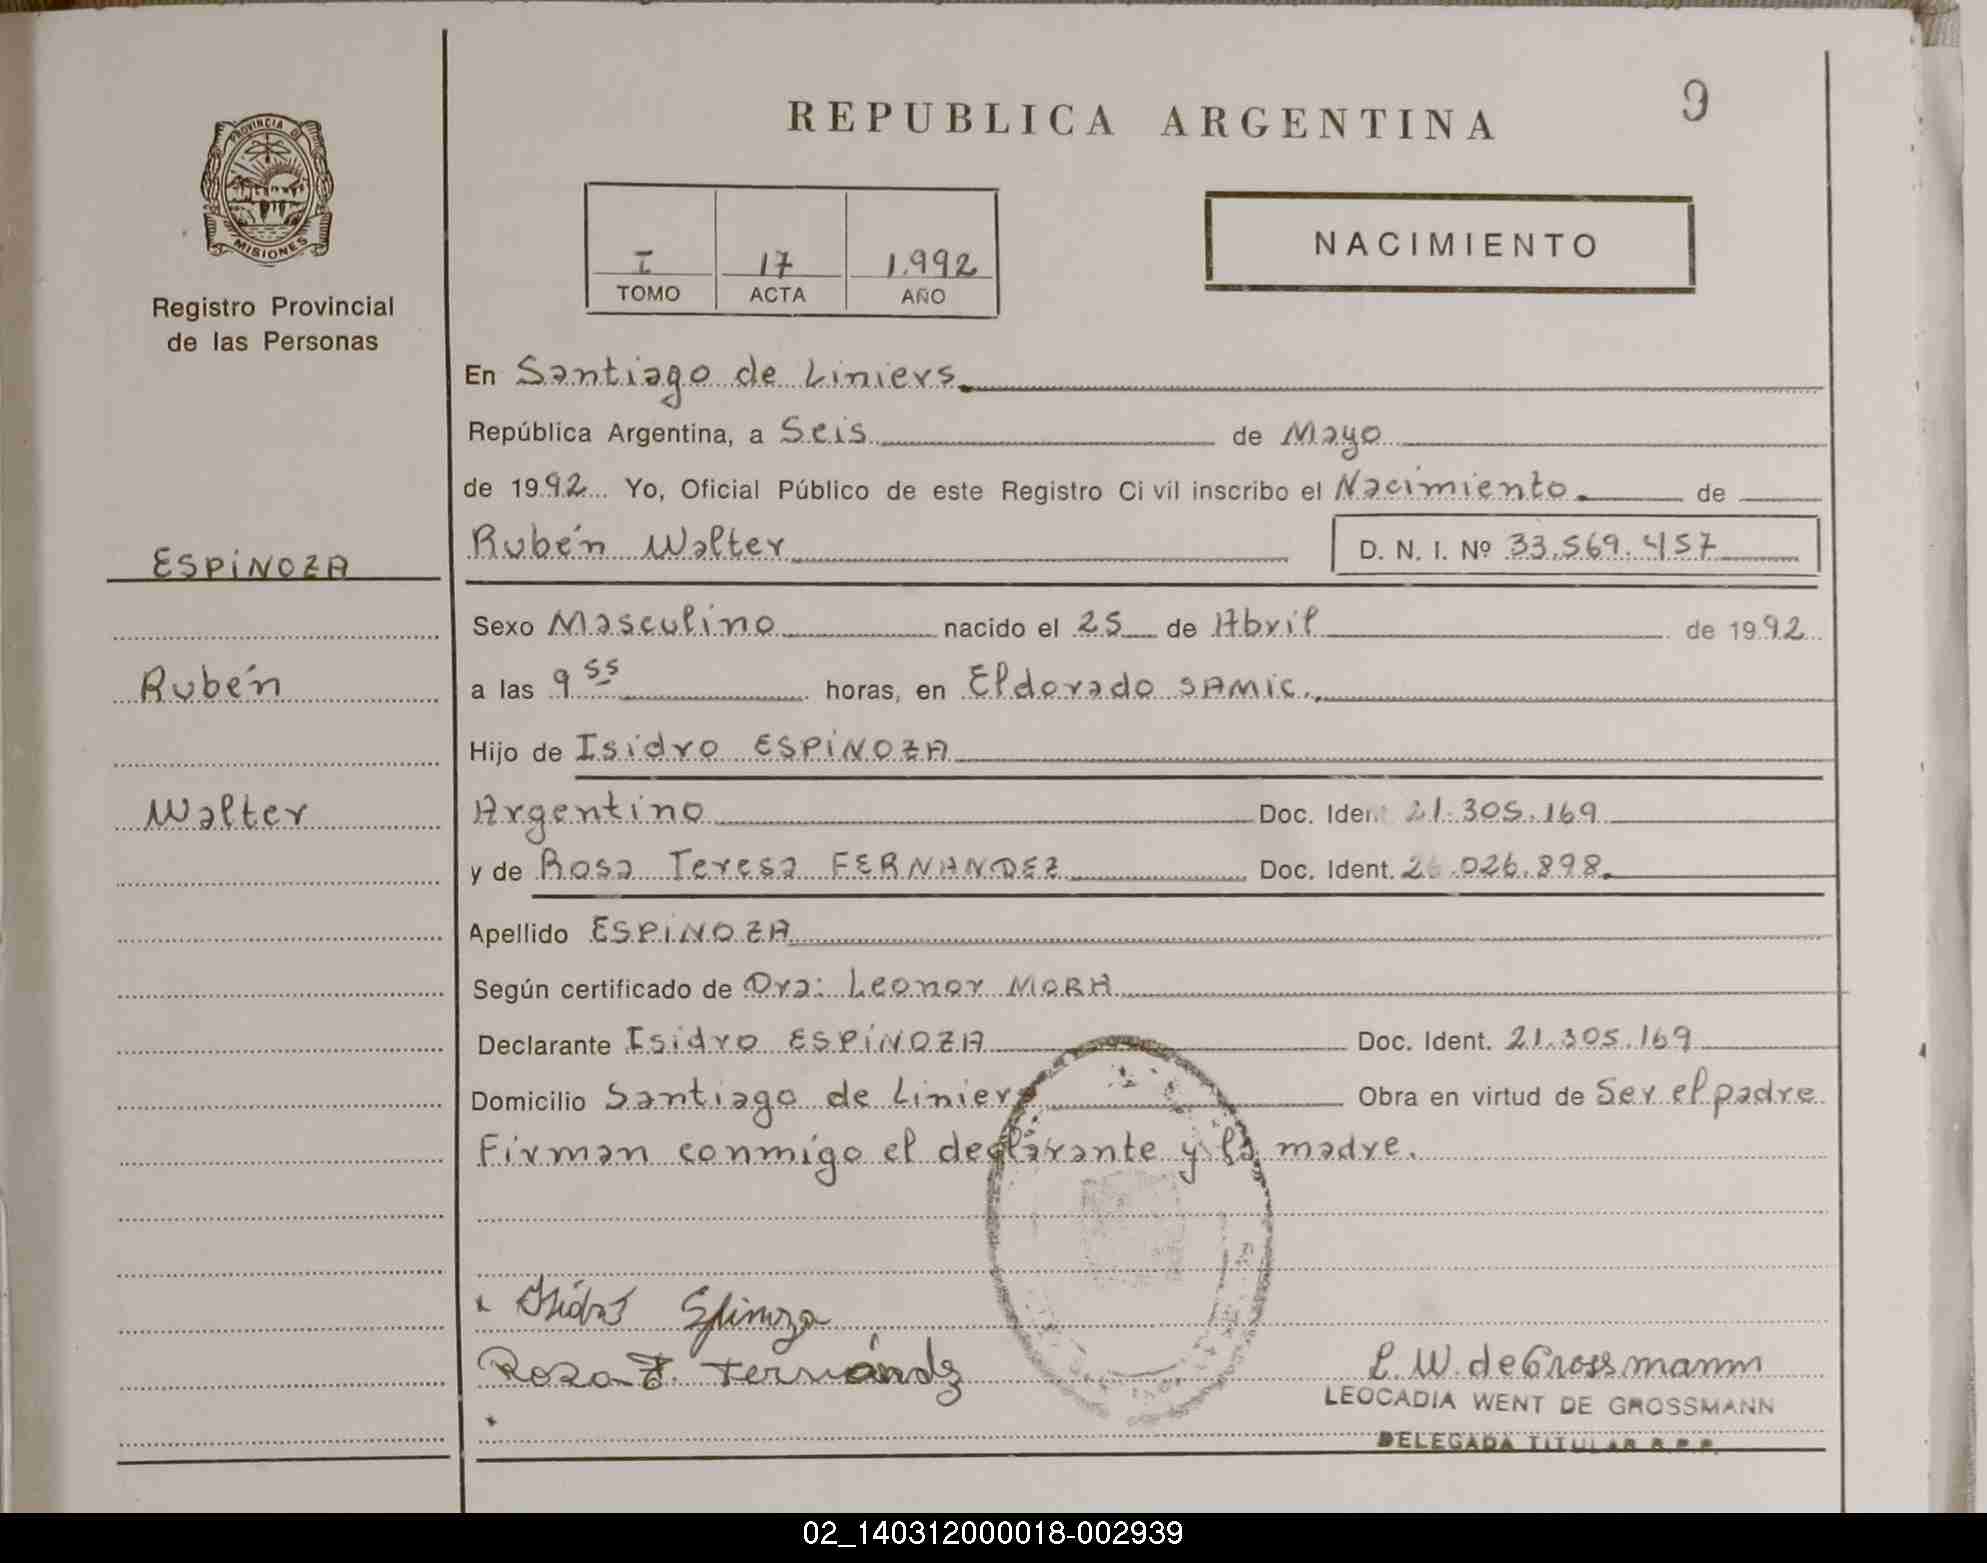 PROVINCIA DE
MISIONES
Registro Provincial
de las Personas
ESPINOZA
Rubén
Walter
REPUBLICA ARGENTINA
9
I 17 1.992
TOMO ACTA AÑO
NACIMIENTO
En Santiago de Liniers.
República Argentina, a Seis de Mayo
de 1992 Yo, Oficial Público de este Registro Civil inscribo el Nacimiento. de
Rubén Walter D. N. I. Nº 33.569.457
Sexo Masculino nacido el 25 de Abril de 1992
a las 9 55 horas, en Eldorado SAMIC.
Hijo de Isidro ESPINOZA
Argentino Doc. Ident. 21.305.169
y de Rosa Teresa FERNANDEZ Doc. Ident. .026.898.
Apellido ESPINOZA
Según certificado de Dra: Leonor MORA
Declarante Isidro ESPINOZA Doc. Ident. 21.305.169
Domicilio Santiago de Liniers Obra en virtud de Ser el padre
Firman conmigo el declarante y la madre.
Isidro Espinoza
Rosa T. Fernández
L. W. de Grossmann
LEOCADIA WENT DE GROSSMANN
DELEGADA TITULAR R.P.P.
02_140312000018-002939